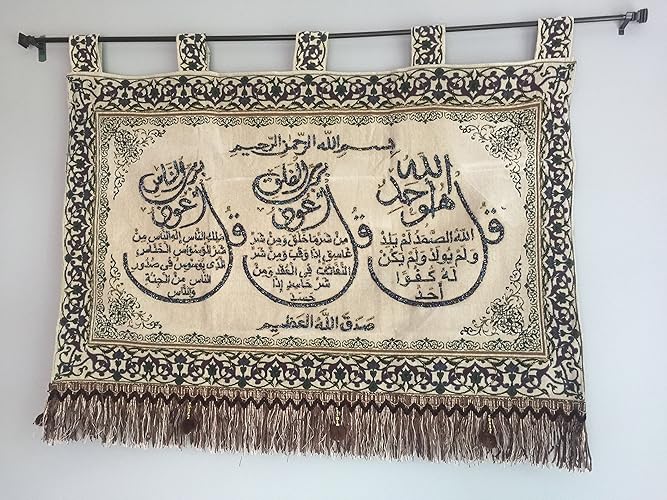 بسم الله الرحمن الرحيم
قل هو الله احد
الله الصمد لم يلد
ولم يولد ولم يكن
له كفوا
احد
قل أعوذ برب الفلق
من شر ما خلق ومن شر
غاسق إذا وقب ومن شر
النفاثات في العقد ومن
شر حاسد إذا
حسد
قل أعوذ برب الناس
ملك الناس إله الناس من
شر الوسواس الخناس
الذي يوسوس في صدور
الناس من الجنة
والناس
صدق الله العظيم